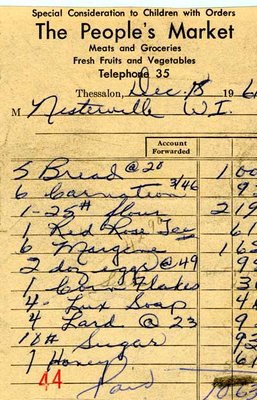 Special Consideration to Children with Orders
The People's Market
Meats and Groceries
Fresh Fruits and Vegetables
Telephone 35
Thessalon, Dec 18 196
M Nesterville W.I.
Account
Forwarded
5 Bread @ 20 1 00
6 Carnation 3/46 9
1-25# flour 2 19
1 Red Rose Tea 6
6 Margerine 1 6
2 doz eggs @ 49 9
1 Corn Flakes 3
4 Lux Soap 4
4 Lard @ 23 9
10# Sugar 9
1 Honey 6
44 Paid 10 63